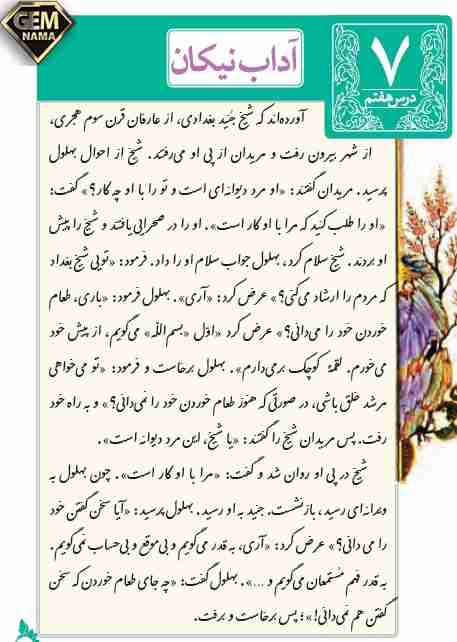 GEM
NAMA
۷
درس هفتم
آداب نیکان
آورده‌اند که شیخ جُنید بغدادی، از عارفان قرن سوم هجری،
از شهر بیرون رفت و مریدان از پی او می‌رفتند. شیخ از احوال بهلول
پرسید. مریدان گفتند: «او مرد دیوانه‌ای است و تو را با او چه کار؟» گفت:
«او را طلب کنید که مرا با او کار است». او را در صحرایی یافتند و شیخ را پیش
او بردند. شیخ سلام کرد، بهلول جواب سلام او را داد. فرمود: «تویی شیخ بغداد
که مردم را ارشاد می‌کنی؟» عرض کرد: «آری». بهلول فرمود: «باری، طعام
خوردن خود را می‌دانی؟» عرض کرد «اوّل «بسم‌الله» می‌گویم، از پیش خود
می‌خورم. لقمهٔ کوچک برمی‌دارم». بهلول برخاست و فرمود: «تو می‌خواهی
مرشد خلق باشی، در صورتی‌که هنوز طعام خوردن خود را نمی‌دانی؟» و به راه خود
رفت. پس مریدان شیخ را گفتند: «یا شیخ، این مرد دیوانه است».
شیخ در پی او روان شد و گفت: «مرا با او کار است». چون بهلول به
ویرانه‌ای رسید، بازنشست. جنید به او رسید. بهلول پرسید: «آیا سخن گفتن خود
را می دانی؟» عرض کرد: «آری، به قدر می‌گویم و بی‌موقع و بی‌حساب نمی‌گویم.
به قدر فهم مستمعان می‌گویم و ...». بهلول گفت: «چه جای طعام خوردن که سخن
گفتن هم نمی‌دانی!»؛ پس برخاست و برفت.